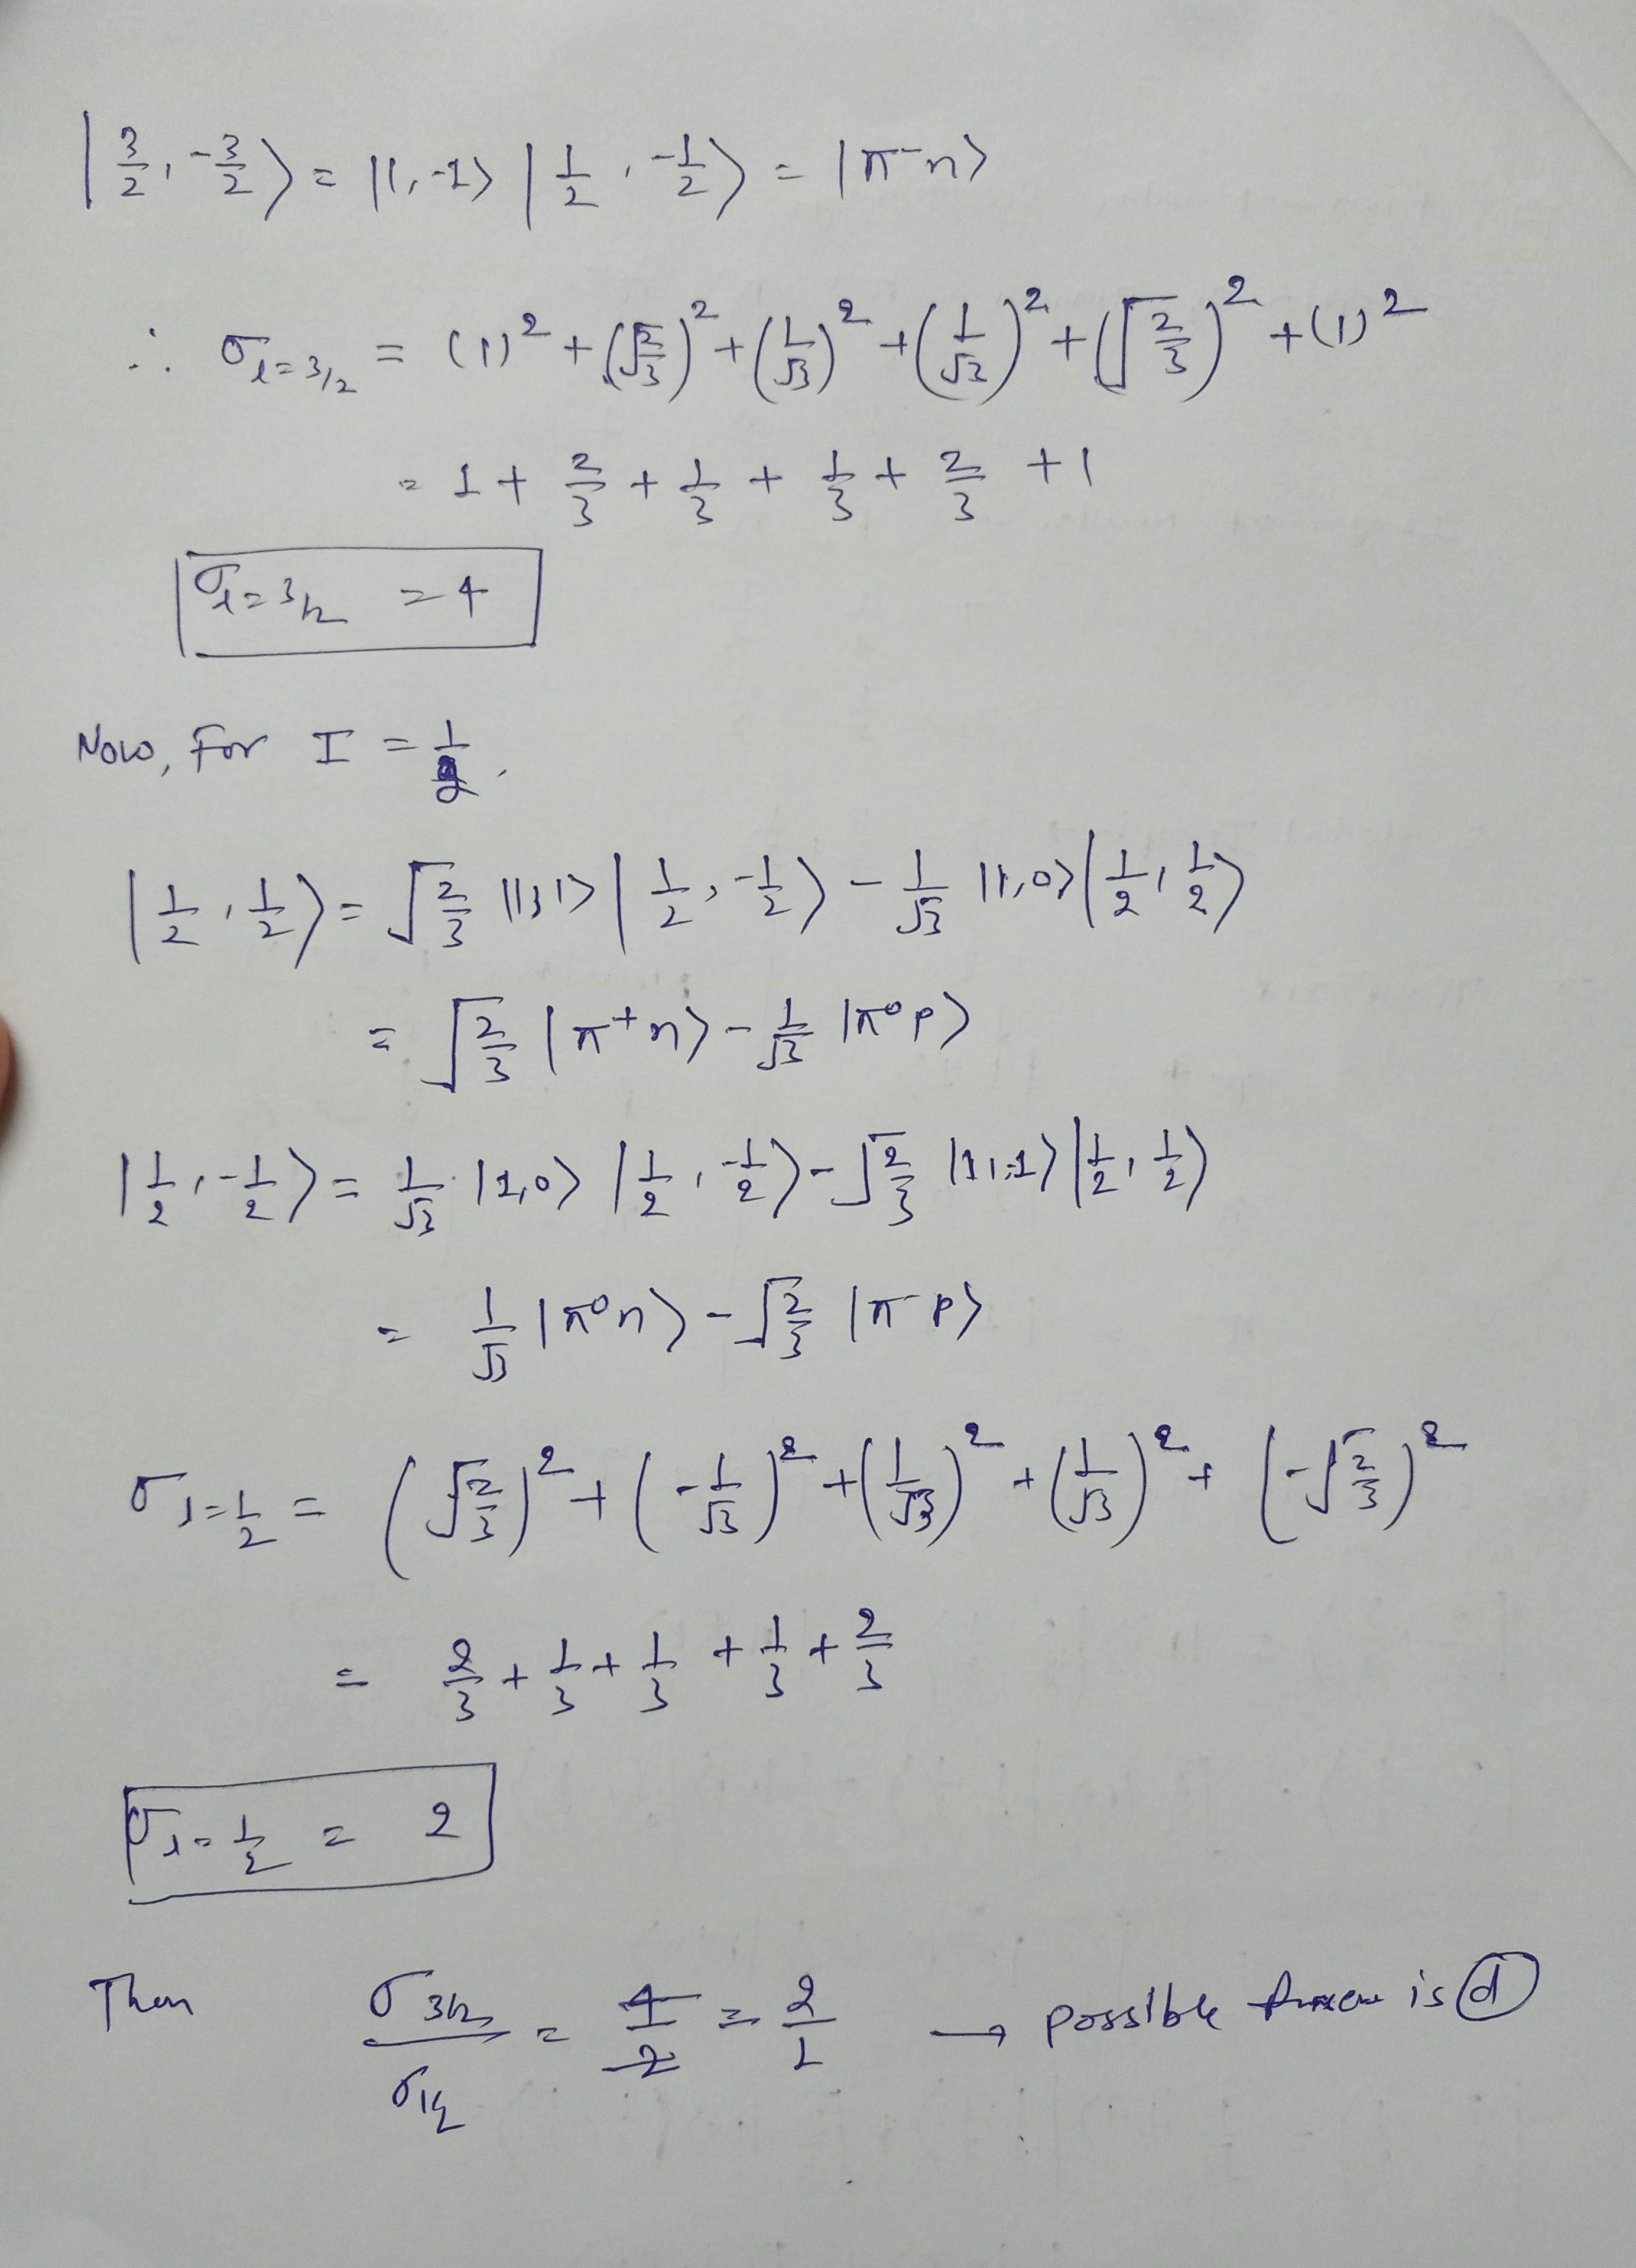 |3/2, -3/2⟩ = |1,-1⟩ |1/2, -1/2⟩ = |π⁻n⟩
∴ σ_I=3/2 = (1)² + (√(2/3))² + (1/√3)² + (1/√3)² + (√(2/3))² + (1)²
= 1 + 2/3 + 1/3 + 1/3 + 2/3 + 1
σ_I=3/2 = 4
Now, For I = 1/2,
|1/2, 1/2⟩ = √(2/3) |1,1⟩ |1/2, -1/2⟩ - 1/√3 |1,0⟩ |1/2, 1/2⟩
= √(2/3) |π⁺n⟩ - 1/√3 |π⁰p⟩
|1/2, -1/2⟩ = 1/√3 |1,0⟩ |1/2, -1/2⟩ - √(2/3) |1,-1⟩ |1/2, 1/2⟩
= 1/√3 |π⁰n⟩ - √(2/3) |π⁻p⟩
σ_I=1/2 = (√(2/3))² + (-1/√3)² + (1/√3)² + (1/√3)² + (-√(2/3))²
= 2/3 + 1/3 + 1/3 + 1/3 + 2/3
σ_I=1/2 = 2
Then σ_3/2 / σ_1/2 = 4/2 = 2/1 → possible is (d)